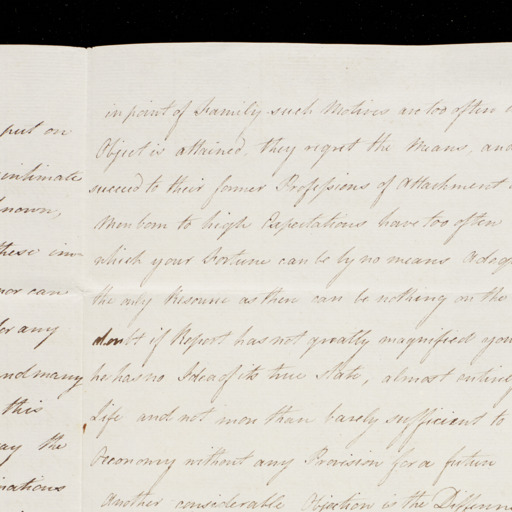 put on
intimate
known,
these inn
nor can
for any
and many
this
ay the
inations
in point of Family such Motives are too often
Object is attained, they regret the Means, and
succeed to their former Professions of Attachment
Men born to high Expectations have too often
which your Fortune can be by no means Adeq
the only Resource as there can be nothing on the
doubt if Report has not greatly magnified you
he has no Idea of its true State, almost entirely
Life and not more than barely sufficient to
Oeconomy without any Provision for a future
Another considerable Objection is the Differen